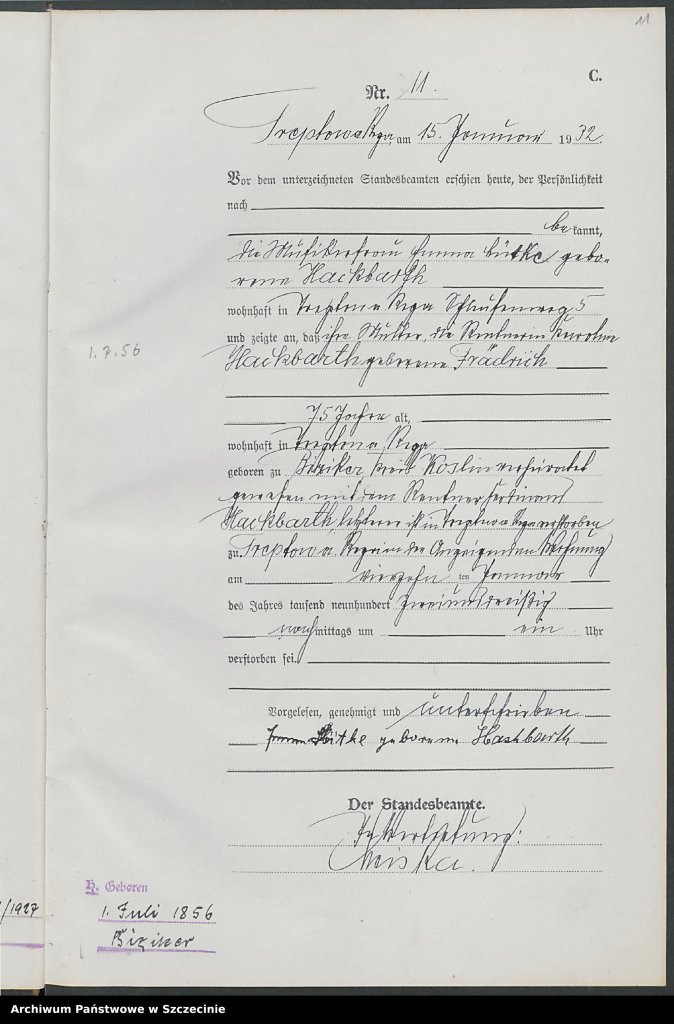 11
C.
Nr. 11.
Treptow a Rega, am 15. Januar 1932.
Vor dem unterzeichneten Standesbeamten erschien heute, der Persönlichkeit
nach
be kannt,
die Musikerfrau Emma Lütke gebo-
rene Hackbarth
wohnhaft in Treptow a Rega 5
und zeigte an, daß ihre Mutter, die Rentnerin Karolin
Hackbarth geborene Frädrich
1.7.56
75 Jahre alt,
wohnhaft in Treptow a. Rega
geboren zu Biziker Kreis Köslin verheiratet
gewesen mit dem Rentner Ferdinand
Hackbarth, letzterer ist in Treptow a Rega verstorben
zu Treptow a. Rega in der Anzeigenden Wohnung
am vierzehn ten Januar
des Jahres tausend neunhundert zweiunddreißig
nach mittags um ein Uhr
verstorben sei.
Vorgelesen, genehmigt und unterschrieben
Emma geborene Hackbarth
Der Standesbeamte.
In Vertretung:
H. Geboren
1. Juli 1856
Biziker
/1927
Archiwum Państwowe w Szczecinie